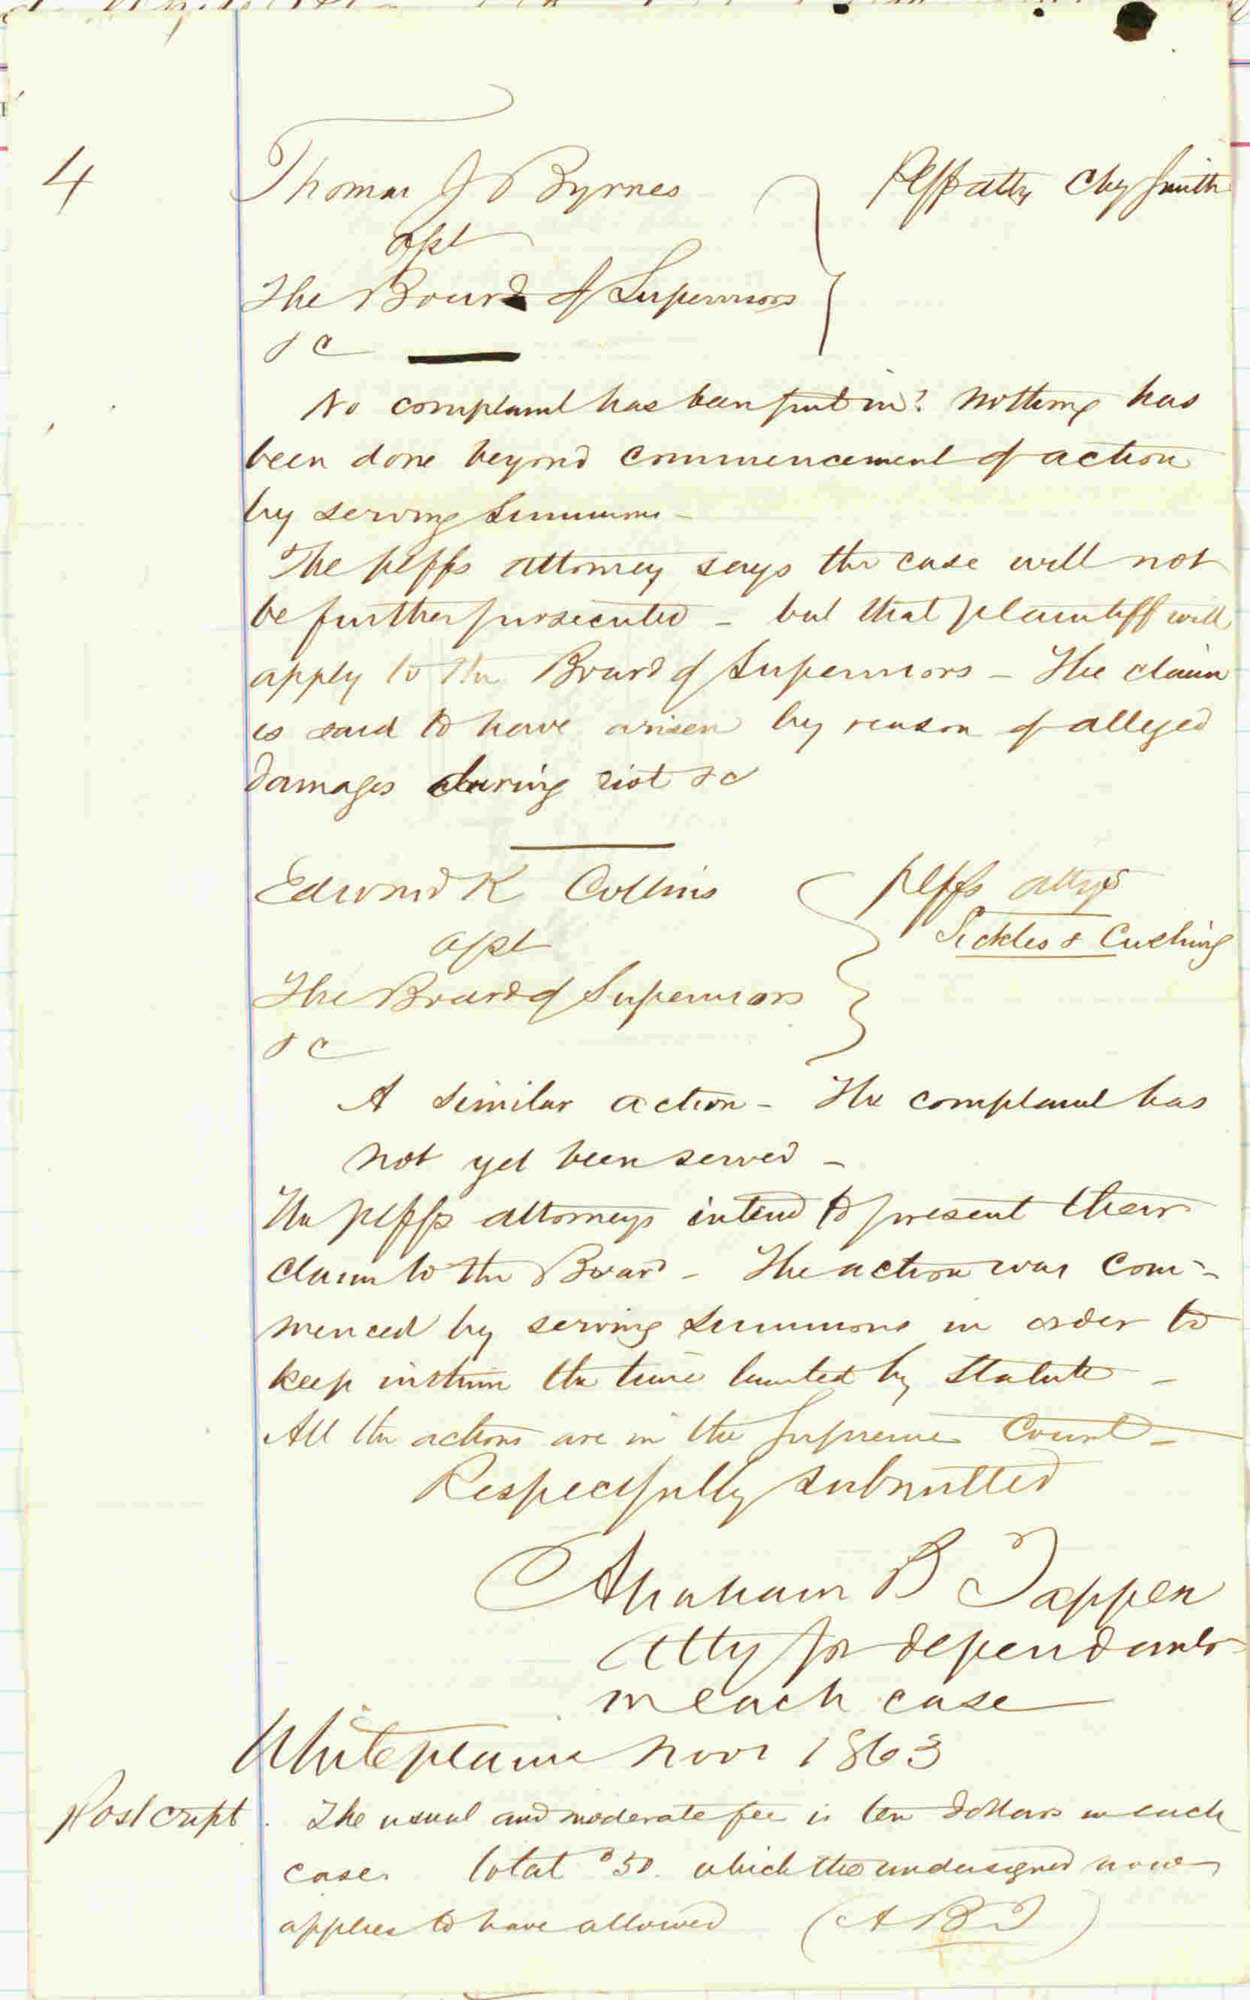 4
Thomas J Byrnes
Plffs atty
Smith
agst
The Board of Supervisors
&c
No complaint has been put in. Nothing has
been done beyond commencement of action
by serving summons -
The plffs attorney says the case will not
be further prosecuted - but that plaintiff will
apply to the Board of Supervisors - The claim
is said to have arisen by reason of alleged
damages during riot &c
Edward K Collins
plffs attys
Sickles & Cushing
agst
The Board of Supervisors
&c
A similar action - The complaint has
not yet been served -
The plffs attorneys intend to present their
claim to the Board - The action was com-
menced by serving summons in order to
keep within the time limited by Statute -
All the actions are in the Supreme Court -
Respectfully submitted
Abraham B Tappen
Atty for defendants
in each case
Whiteplains Nov 1863
Postcript. The usual and moderate fee is ten dollars in each
case. total $50. which the undersigned now
applies to have allowed (A B T)